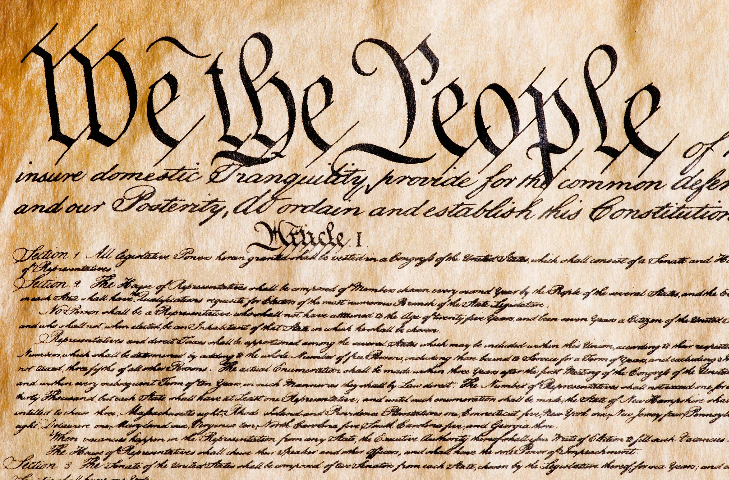 We the People of
insure domestic Tranquility, provide for the common defen
and our Posterity, do ordain and establish this Constitution
Article I
Section 1 All legislative Powers herein granted shall be vested in a Congress of the United States, which shall consist of a Senate and Ho
of Representatives
Section 2 The House of Representatives shall be composed of Members chosen every second Year by the People of the several States, and the
in each State shall have the Qualifications requisite for Electors of the most numerous Branch of the State Legislature.
No Person shall be a Representative who shall not have attained to the Age of twenty five Years, and been seven Years a Citizen of the United
and who shall not, when elected, be an Inhabitant of that State in which he shall be chosen.
Representatives and direct Taxes shall be apportioned among the several States which may be included within this Union, according to their
Numbers, which shall be determined by adding to the whole Number of free Persons, including those bound to Service for a Term of Years, and excluding
not taxed, three fifths of all other Persons. The actual Enumeration shall be made within three Years after the first Meeting of the Congress of the United
and within every subsequent Term of ten Years, in such Manner as they shall by Law direct. The Number of Representatives shall not exceed one for
thirty Thousand, but each State shall have at Least one Representative; and until such enumeration shall be made, the State of New Hampshire shall
entitled to chuse three, Massachusetts eight, Rhode Island and Providence Plantations one, Connecticut five, New York six, New Jersey four,
eight, Delaware one, Maryland six, Virginia ten, North Carolina five, South Carolina five, and Georgia three.
When vacancies happen in the Representation from any State, the Executive Authority thereof shall issue Writs of Election to fill such Vacancies
The House of Representatives shall chuse their Speaker and other Officers; and shall have the sole Power of Impeachment.
Section 3 The Senate of the United States shall be composed of two Senators from each State, chosen by the Legislature thereof, for six Years; and